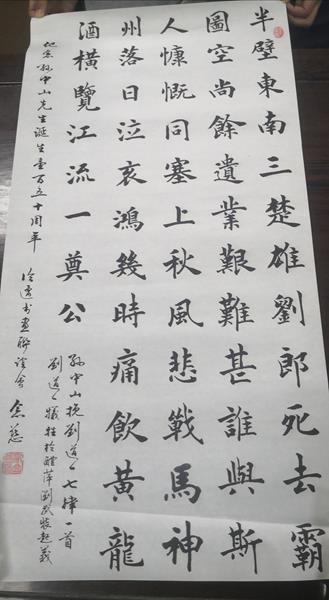 半壁東南三楚雄劉郎死去霸
圖空尚餘遺業艱難甚誰與斯
人慷慨同塞上秋風悲戰馬神
州落日泣哀鴻幾時痛飲黃龍
酒橫覽江流一奠公
孫中山挽劉道一七律一首
劉道一犧牲於醴萍瀏武裝起義
紀念孫中山先生誕生壹百五十周年
書畫聯誼會